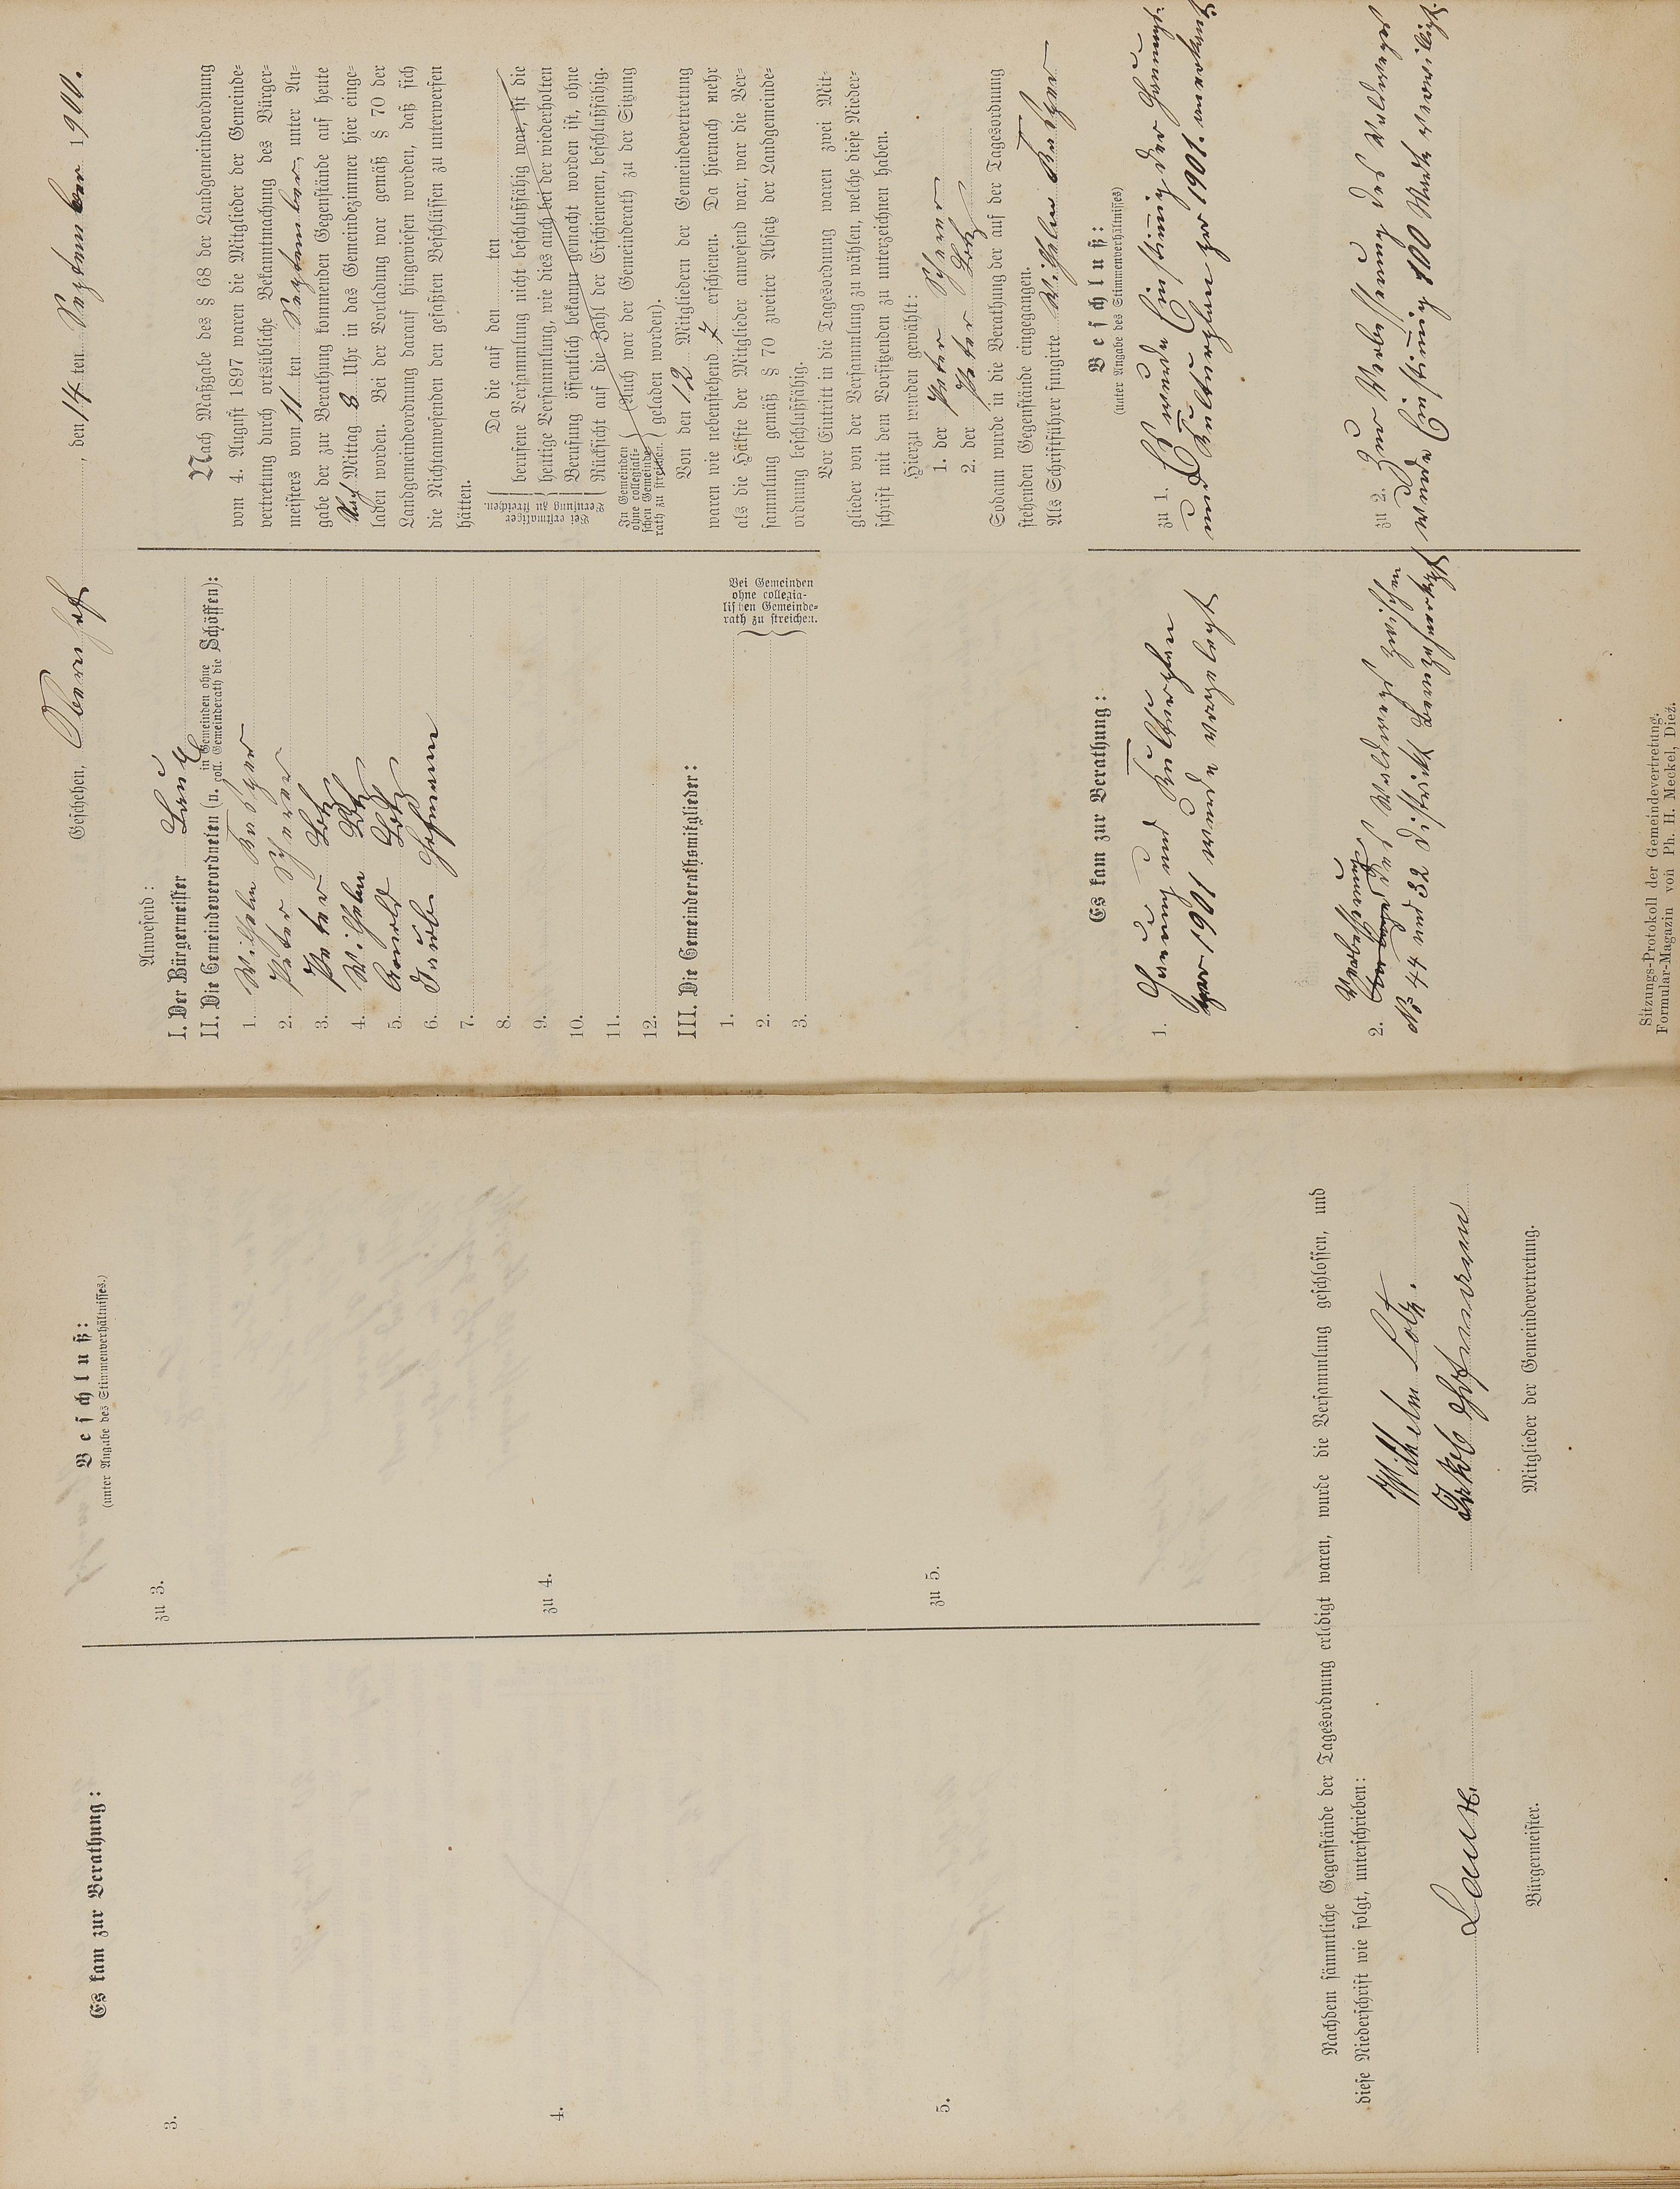 Es kam zur Berathung:
3.
4.
5.
Beschluß:
(unter Angabe des Stimmenverhältnisses.)
zu 3.
zu 4.
zu 5.
Nachdem sämmtliche Gegenstände der Tagesordnung erledigt waren, wurde die Versammlung geschlossen, und
diese Niederschrift wie folgt, unterschrieben:
Wilhelm Lotz.
Jakob Hofmann
Bürgermeister.
Mitglieder der Gemeindevertretung.
Geschehen, Obernhof, den 14ten September 1900.
Anwesend:
I. Der Bürgermeister
II. Die Gemeindeverordneten (u. in Gemeinden ohne coll. Gemeinderath die Schöffen):
1. Wilhelm
2. Peter Scherer
3. Peter Lotz
4. Wilhelm Lotz
5. Lotz
6. Jacob Hofmann
7.
8.
9.
10.
11.
12.
III. Die Gemeinderathsmitglieder:
1.
2.
3.
Bei Gemeinden
ohne collegia-
lischen Gemeinde-
rath zu streichen.
Nach Maßgabe des § 68 der Landgemeindeordnung
vom 4. August 1897 waren die Mitglieder der Gemeinde-
vertretung durch ortsübliche Bekanntmachung des Bürger-
meisters vom 11 ten September, unter An-
gabe der zur Berathung kommenden Gegenstände auf heute
Nach Mittag 8 Uhr in das Gemeindezimmer hier einge-
laden worden. Bei der Vorladung war gemäß § 70 der
Landgemeindeordnung darauf hingewiesen worden, daß sich
die Nichtanwesenden den gefaßten Beschlüssen zu unterwerfen
hätten.
Bei erstmaliger
Berufung zu streichen.
Da die auf den ten
berufene Versammlung nicht beschlußfähig war, ist die
heutige Versammlung, wie dies auch bei der wiederholten
Berufung öffentlich bekannt gemacht worden ist, ohne
Rücksicht auf die Zahl der Erschienenen, beschlußfähig.
In Gemeinden
ohne collegiali-
schen Gemeinde-
rath zu streichen.
(Auch war der Gemeinderath zu der Sitzung
geladen worden).
Von den 12 Mitgliedern der Gemeindevertretung
waren wie nebenstehend 7 erschienen. Da hiernach mehr
als die Hälfte der Mitglieder anwesend war, war die Ver-
sammlung gemäß § 70 zweiter Absatz der Landgemeinde-
ordnung beschlußfähig.
Vor Eintritt in die Tagesordnung waren zwei Mit-
glieder von der Versammlung zu wählen, welche diese Nieder-
schrift mit dem Vorsitzenden zu unterzeichnen haben.
Hierzu wurden gewählt:
1. der Peter Scherer
2. der Peter Lotz
Sodann wurde in die Berathung der auf der Tagesordnung
stehenden Gegenstände eingegangen.
Als Schriftführer fungirte Wilhelm
Es kam zur Berathung:
1. Hauung und Kulturplan
per 1901 wurde vorgelegt
2. Verbesserung
des Waldwegs zwischen
No 44 und 32 Distrikt
Beschluß:
(unter Angabe des Stimmenverhältnisses)
zu 1. Es wurde Einstimmig der Hauungs-
und Kulturplan per 1901. anerkannt
zu 2. Zur Verbesserung des Waldweges
wurde Einstimmig 100 Mark verwilligt.
Sitzungs-Protokoll der Gemeindevertretung.
Formular-Magazin von Ph. H. Meckel, Diez.